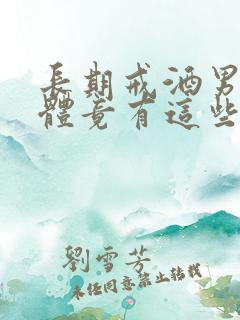 長期戒酒男
體竟有這些
劉雪芳
未經同意禁止轉載